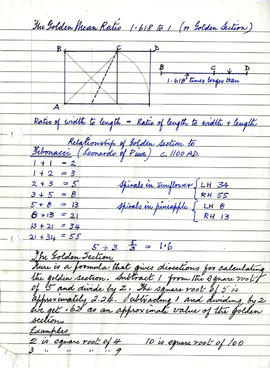 The Golden Mean Ratio 1.618 to 1 (or Golden Section)
B C D
B C D
A
1.618 times longer than
Ratio of width to length = Ratio of length to width + length
Relationship of Golden Section to
Fibonacci (Leonardo of Pisa) c. 1100 AD.
1 + 1 = 2
1 + 2 = 3
2 + 3 = 5 Spirals in sunflower { LH 34
3 + 5 = 8 RH 55
5 + 8 = 13 Spirals in pineapple { LH 8
8 + 13 = 21 RH 13
13 + 21 = 34
21 + 34 = 55
5 ÷ 3 5/3 = 1.6
The Golden Section
Here is a formula that gives directions for calculating
the golden section. Subtract 1 from the square root
of 5 and divide by 2. The square root of 5 is
approximately 2.24. Subtracting 1 and dividing by 2
we get .62 as an approximate value of the golden
section.
Examples
2 is square root of 4 10 is square root of 100
3 " " " " 9